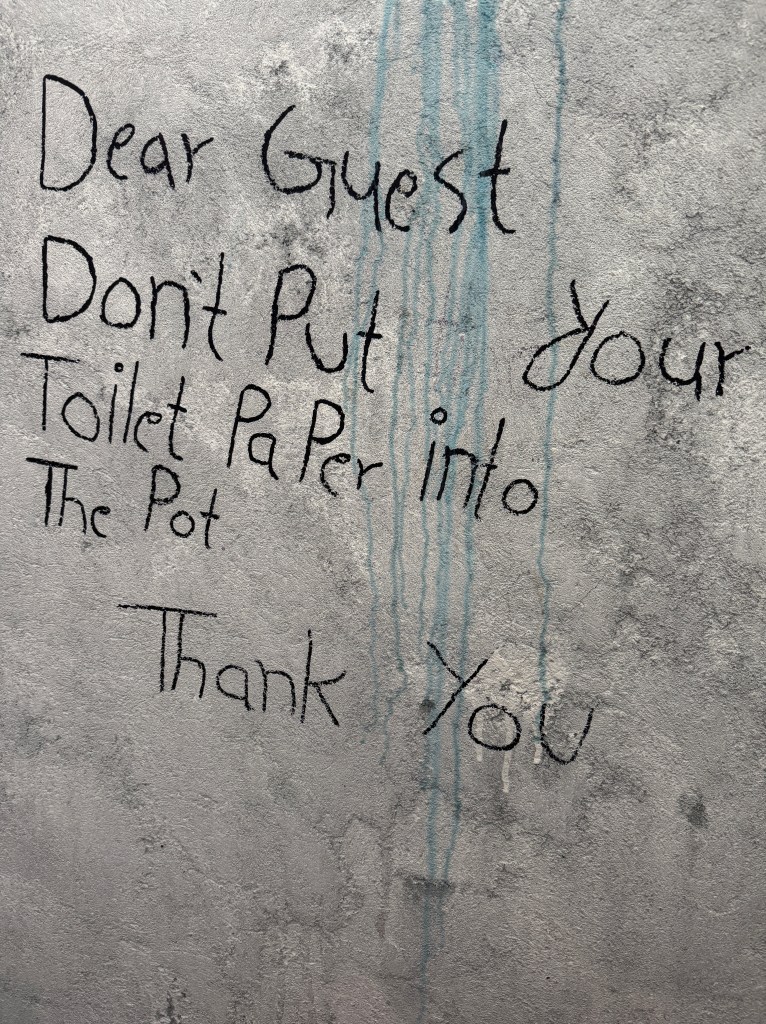 Dear Guest
Don't Put Your
Toilet PaPer into
The Pot
Thank You